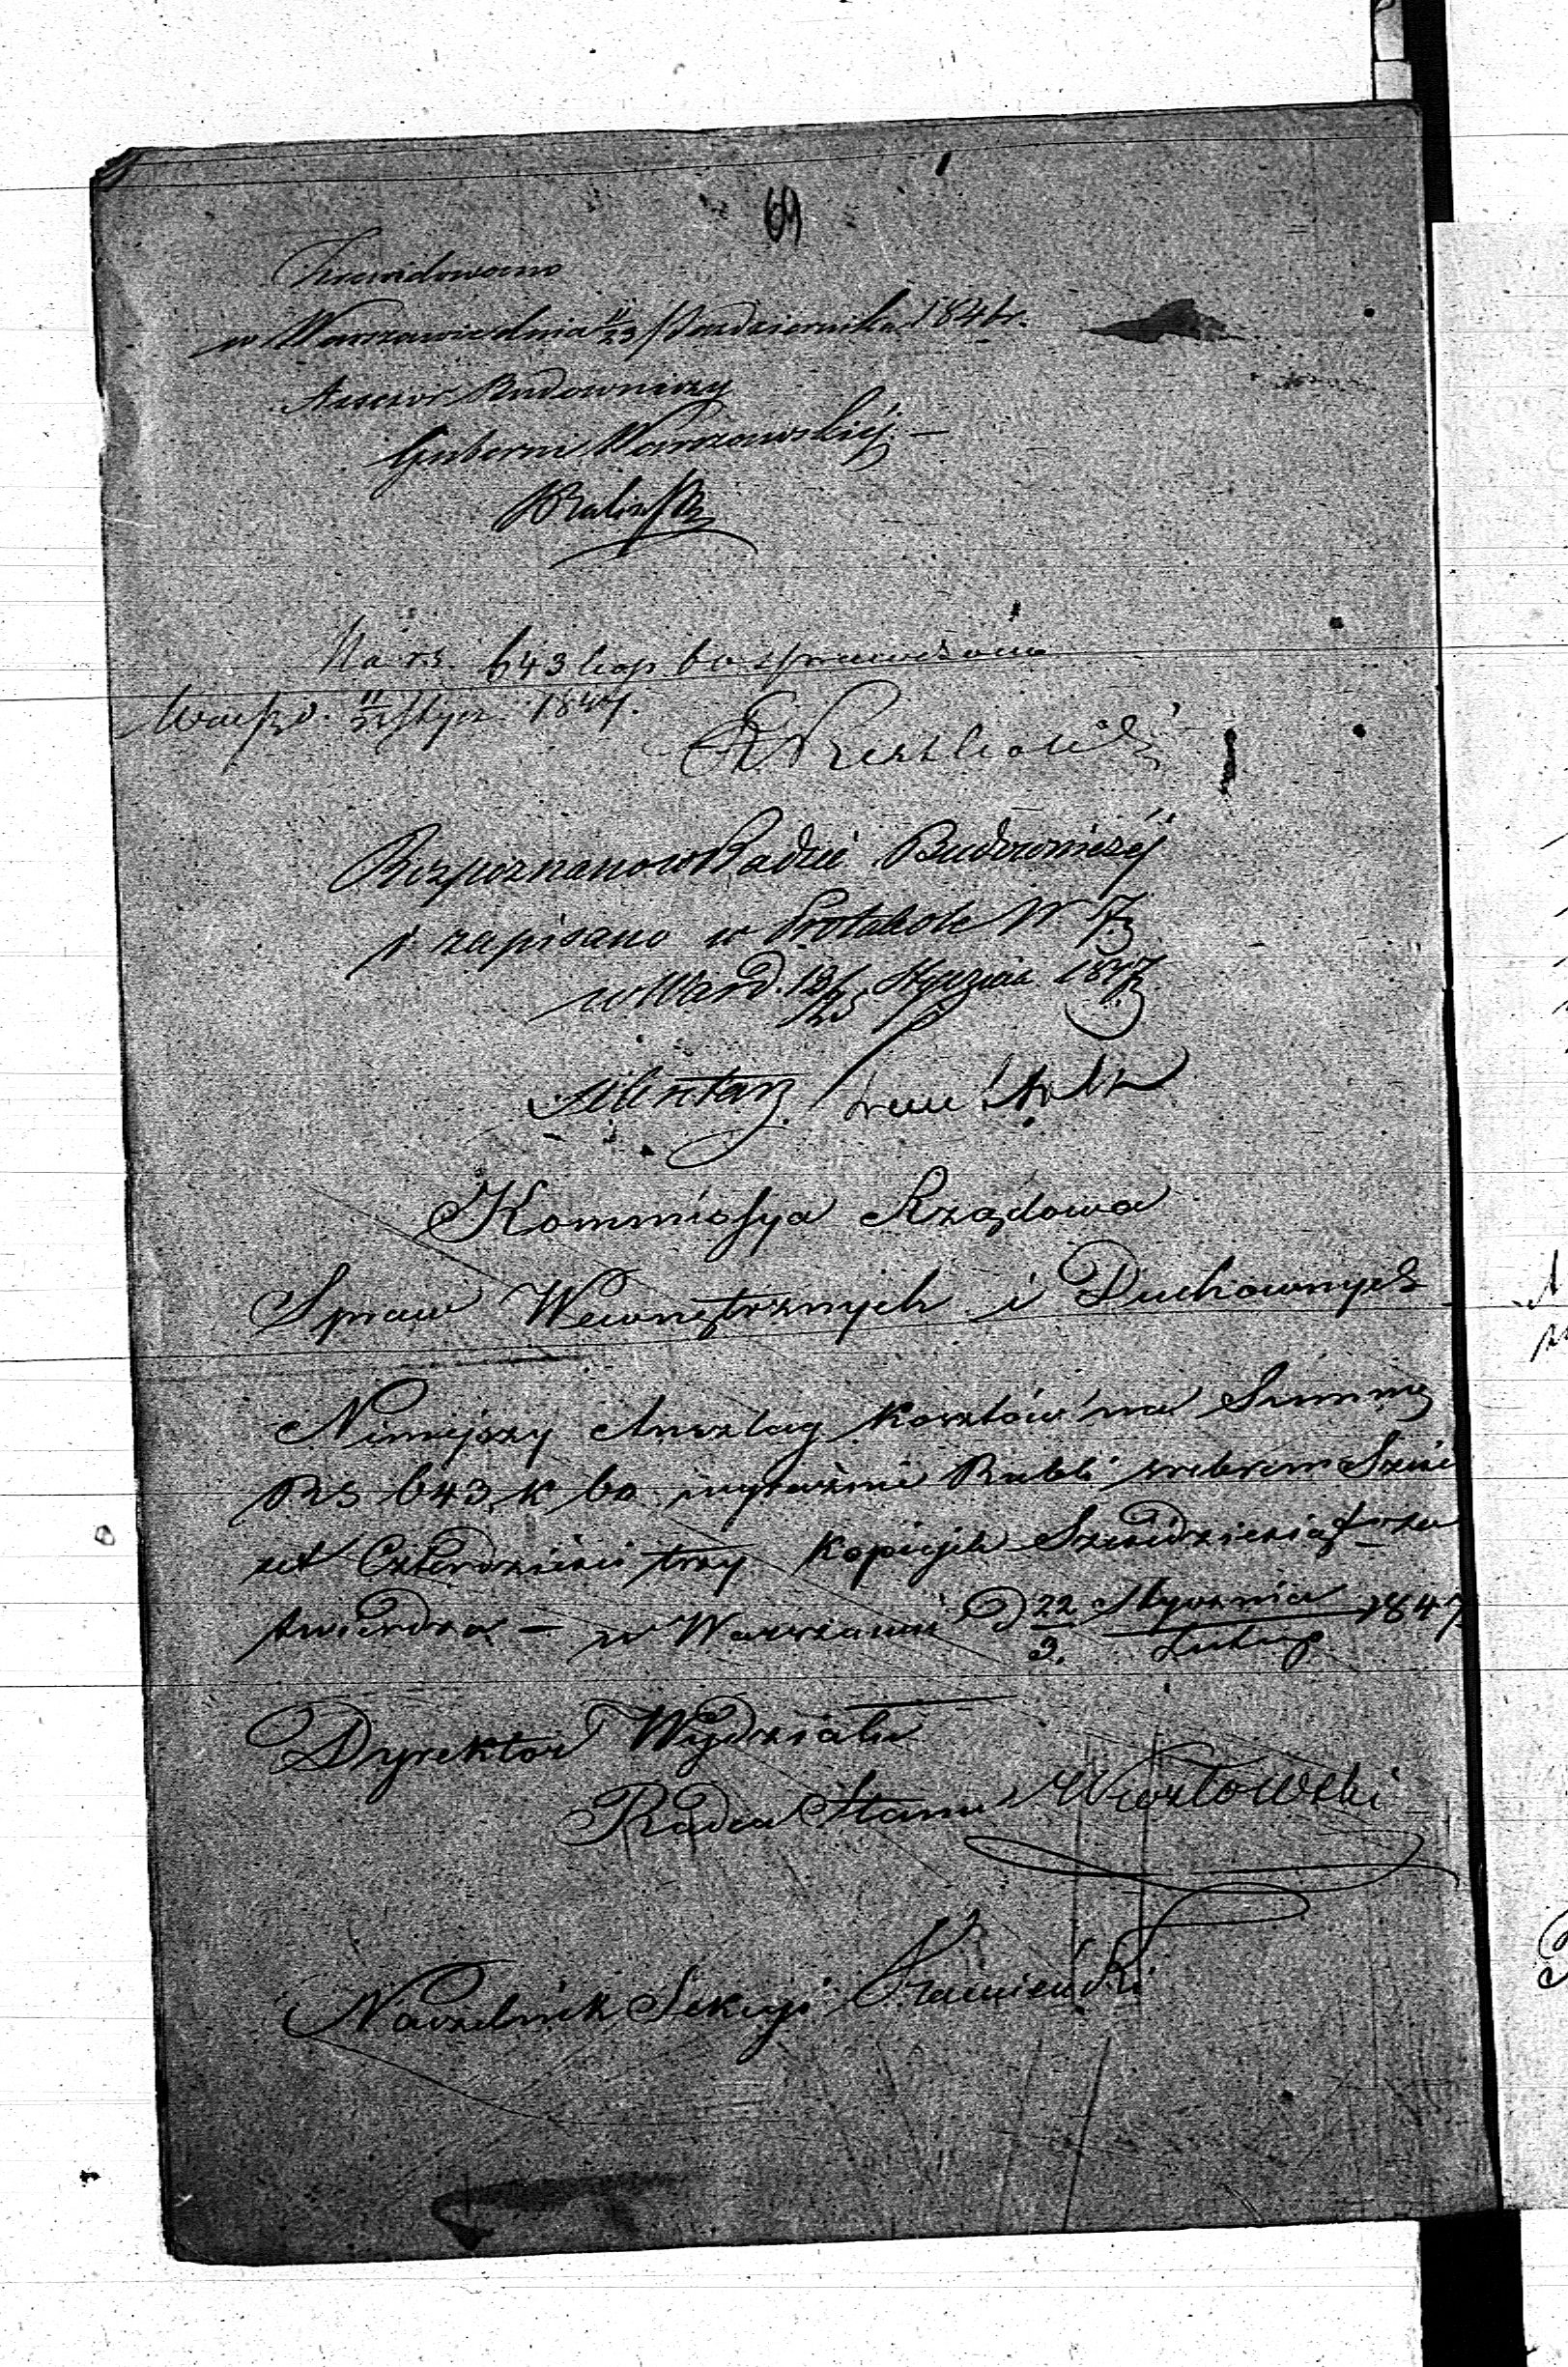 69
Zrewidowano
w Warszawie dnia 11/23 Października 1846 r.
Assessor Budowniczy
Gubernii Warszawskiéj —
Na rs. 643 kop 60 sprawdzono
11/23 Stycz. 1847.
Rozpoznano w Radzie Budowniczéj
i zapisano w Protokole N 7
w War d. 13/25 Stycznia 1847
Kommissya Rządowa
Spraw Wewnętrznych i Duchownych
Niniejszy Anszlag kosztów na Summę
RS 643 k 60 wyraźnie Rubli srebrem Sześć
set Czterdzieści trzy kopiejek Sześćdziesiąt za
twierdza — w Warszawie d 22 Stycznia / 3. Lutego 1847
Dyrektor Wydziału
Radca Stanu
Naczelnik Sekcyi